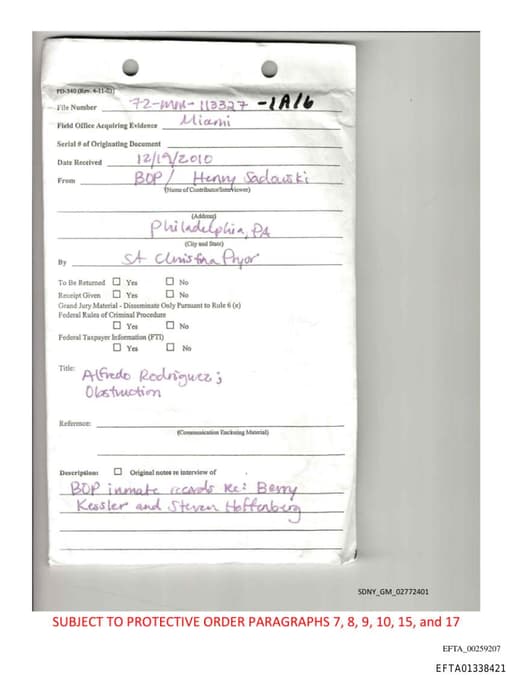 FD-340 (Rev. 4-11-03)
File Number 72-MM-113327 -1A16
Field Office Acquiring Evidence Miami
Serial # of Originating Document
Date Received 12/19/2010
From BOP / Henry Sadowski
(Name of Contributor/Interviewer)
(Address)
Philadelphia, PA
(City and State)
By SA Christina Pryor
To Be Returned ☐ Yes ☐ No
Receipt Given ☐ Yes ☐ No
Grand Jury Material - Disseminate Only Pursuant to Rule 6 (e)
Federal Rules of Criminal Procedure
☐ Yes ☐ No
Federal Taxpayer Information (FTI)
☐ Yes ☐ No
Title:
Alfredo Rodriguez;
Obstruction
Reference:
(Communication Enclosing Material)
Description: ☐ Original notes re interview of
BOP inmate records re: Berry
Kessler and Steven Hoffenberg
SDNY_GM_02772401
SUBJECT TO PROTECTIVE ORDER PARAGRAPHS 7, 8, 9, 10, 15, and 17
EFTA_00259207
EFTA01338421